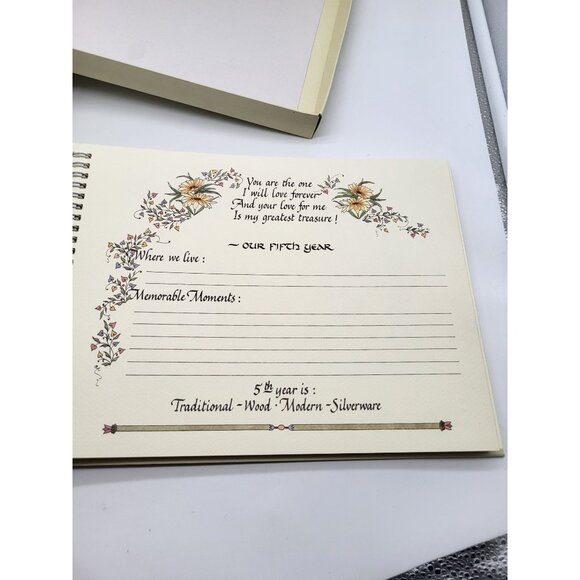 You are the one
I will love forever
And your love for me
Is my greatest treasure!
~ OUR FIFTH YEAR
Where we live:
Memorable Moments:
5th year is:
Traditional - Wood · Modern - Silverware